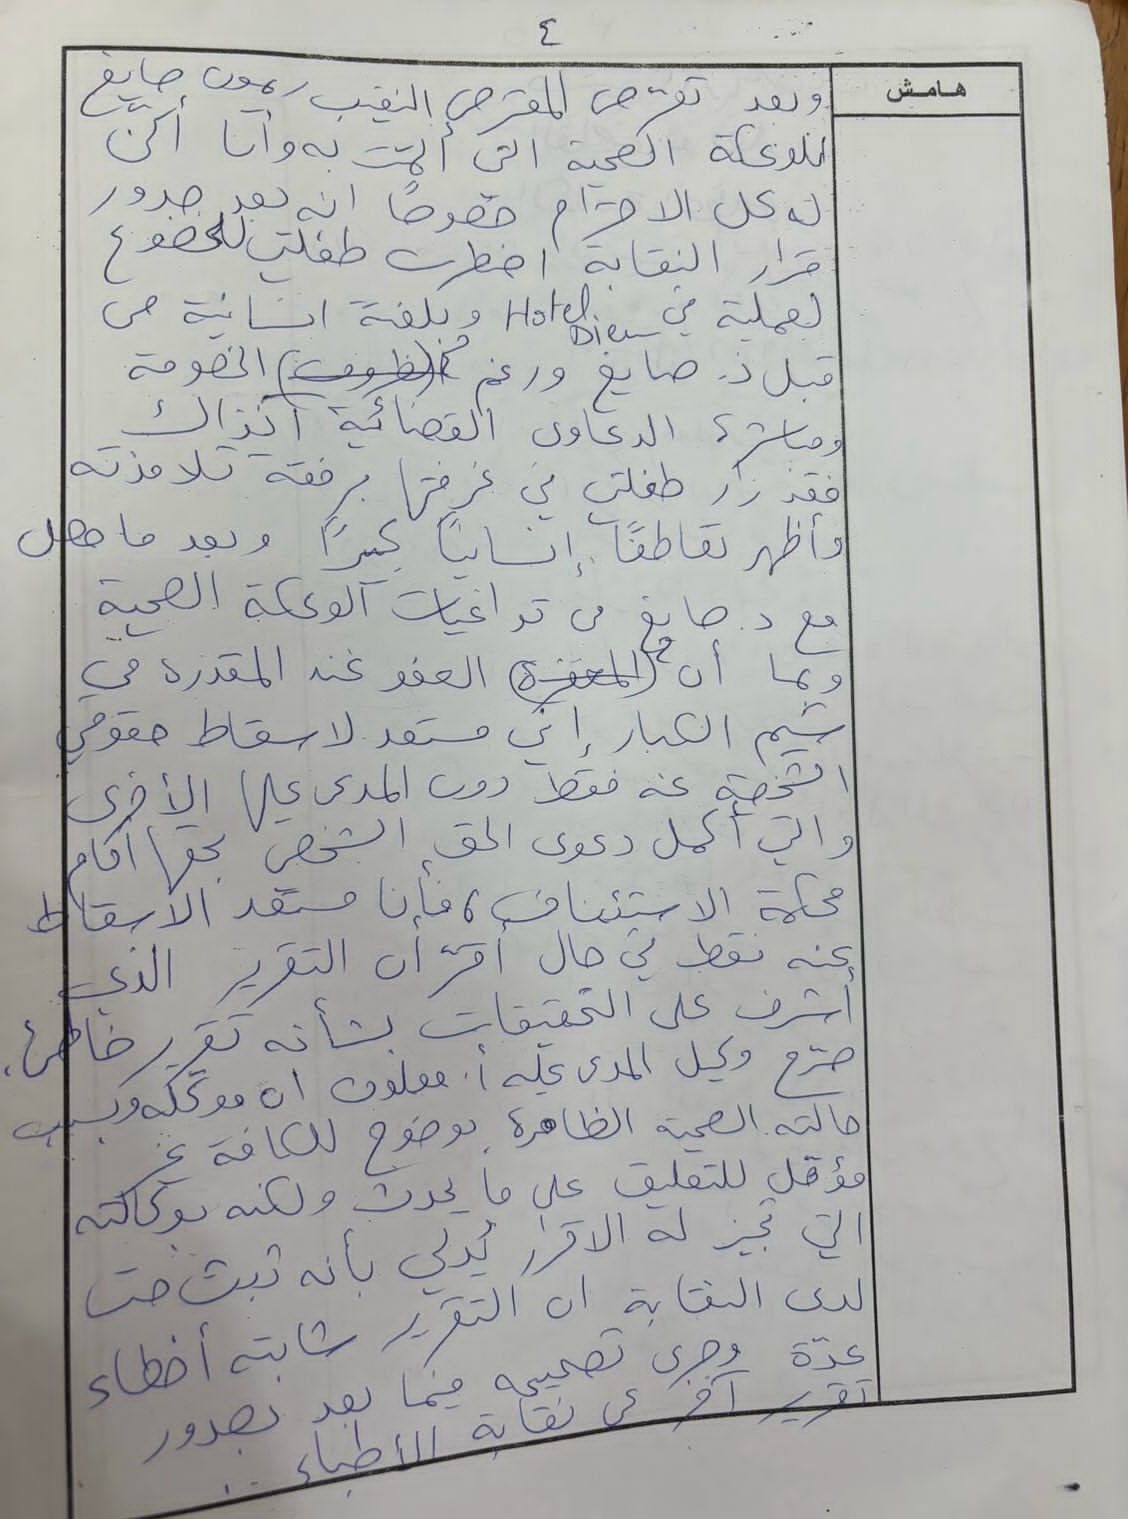 ٤
هامش
وبعد تعرّض المعترض النقيب ريمون صايغ
للوعكة الصحية التي ألمّت به وأنا أكنّ
له كل الاحترام خصوصًا انه بعد صدور
قرار النقابة اضطرت طفلتي للخضوع
لعملية في Hotel Dieu وبلفتة انسانية من
قبل د. صايغ ورغم (ظروف) الخصومة
ومباشرة الدعاوى القضائية آنذاك
فقد زار طفلتي في غرفتها برفقة تلامذته
وأظهر تعاطفًا إنسانيًا كبيرًا وبعد ما حصل
مع د. صايغ من تداعيات الوعكة الصحية
وبما أن (المغفرة) العفو عند المقدرة من
شيم الكبار إني مستعد لاسقاط حقوقي
الشخصية عنه فقط دون المدعى عليها الأخرى
والتي أكمل دعوى الحق الشخصي بحقها أمام
محكمة الاستئناف، فأنا مستعد الاسقاط
عنه فقط في حال أقرّ أن التقرير الذي
أشرف على التحقيقات بشأنه تقرير خاطئ.
صرّح وكيل المدعى عليه أ. معلوف ان موكله وبسبب
حالته الصحية الظاهرة بوضوح للكافة غير
مؤهل للتعليق على ما يحدث ولكنه بوكالته
التي تجيز له الاقرار يُدلي بأنه ثبت حتى
لدى النقابة ان التقرير شابته أخطاء
عدّة وجرى تصحيحه فيما بعد بصدور
تقرير آخر عن نقابة الأطباء..